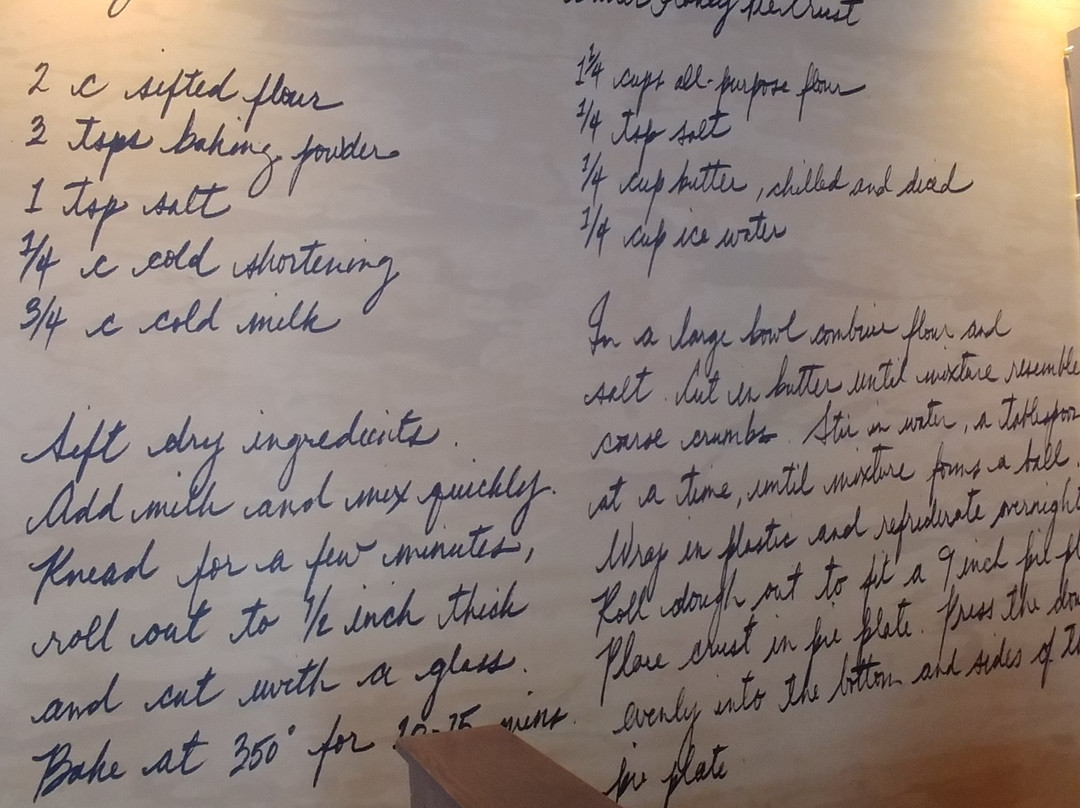 2 c sifted flour
3 tsps baking powder
1 tsp salt
1/4 c cold shortening
3/4 c cold milk
Sift dry ingredients.
Add milk and mix quickly.
Knead for a few minutes,
roll out to 1/2 inch thick
and cut with a glass.
Bake at 350° for mins.
Piecrust
1 1/4 cups all-purpose flour
1/4 tsp salt
1/4 cup butter, chilled and diced
1/4 cup ice water
In a large bowl combine flour and
salt. Cut in butter until mixture resemble
coarse crumbs. Stir in water, a tablespoon
at a time, until mixture forms a ball.
Wrap in plastic and refrigerate overnight
Roll dough out to fit a 9 inch pie pl
Place crust in pie plate. Press the dou
evenly into the bottom and sides of t
pie plate